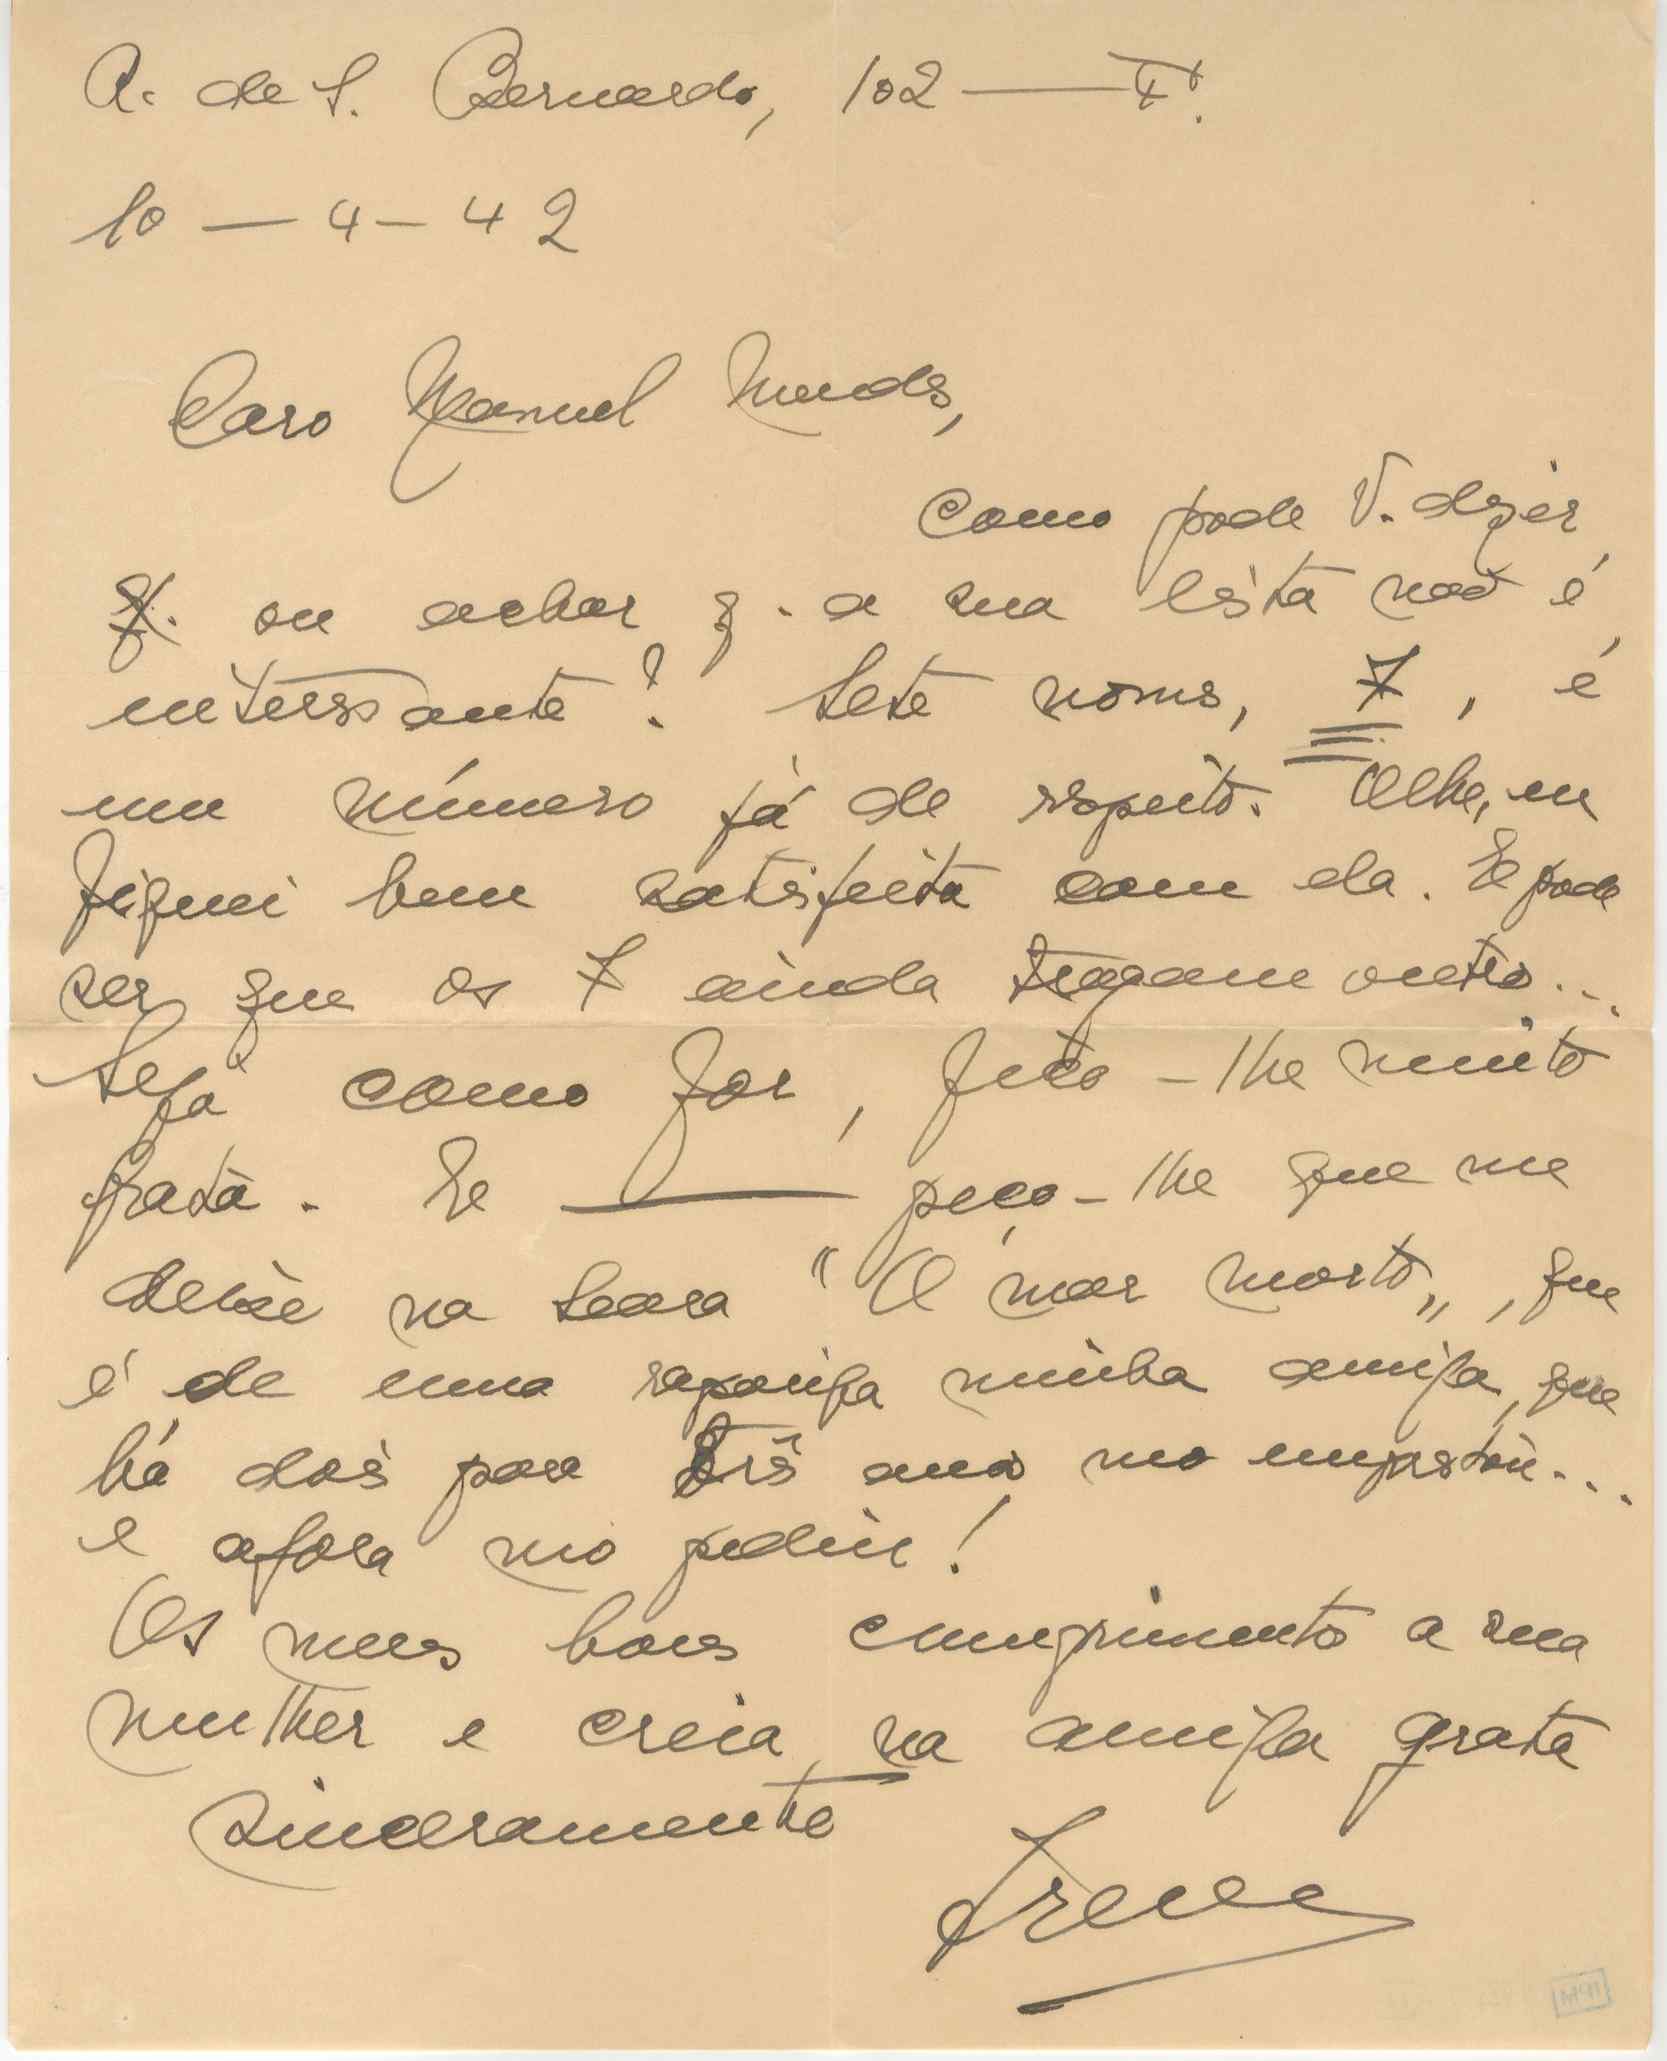 R. de S. Bernardo, 102 — 4º.
10 — 4 — 42
Caro Manuel Mendes,
Como pode V. dizer
q. ou achar q. a sua lista não é
interessante? Sete nomes, 7, é
um número já de respeito. Olhe, eu
fiquei bem satisfeita com ela. E pode
ser que os 7 ainda tragam outros...
Seja como for, fico-lhe muito
grata. E — peço-lhe que me
deixe na Seara "O mar morto", que
é de uma rapariga minha amiga, que
há dois para três anos mo emprestou...
e agora mo pediu!
Os meus bons cumprimentos a sua
mulher e creia na amiga grata
sinceramente
Irene